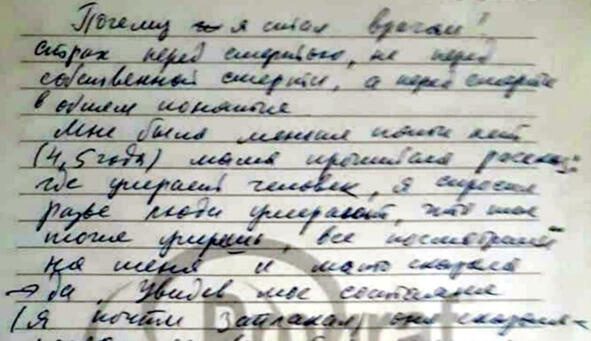 Почему я стал врачом?
страх перед смертью, не перед
собственной смерти, а перед смерти
в общем понятия
Мне было меньше пяти лет
(4,5 года) мама прочитала рассказ:
где умирает человек, я спросил
разве люди умерают, что мне
тоже умрешь, все посмотрели
на меня и мать сказала
→ да, Увидев мое состояние
(я почти заплакал) она сказала